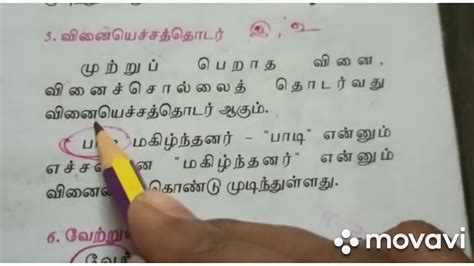 5. வினையெச்சத்தொடர் இ, உ
முற்றுப் பெறாத வினை,
வினைச்சொல்லைத் தொடர்வது
வினையெச்சத்தொடர் ஆகும்.
மகிழ்ந்தனர் – "பாடி" என்னும்
"மகிழ்ந்தனர்" என்னும்
கொண்டு முடிந்துள்ளது.
6.
movavi